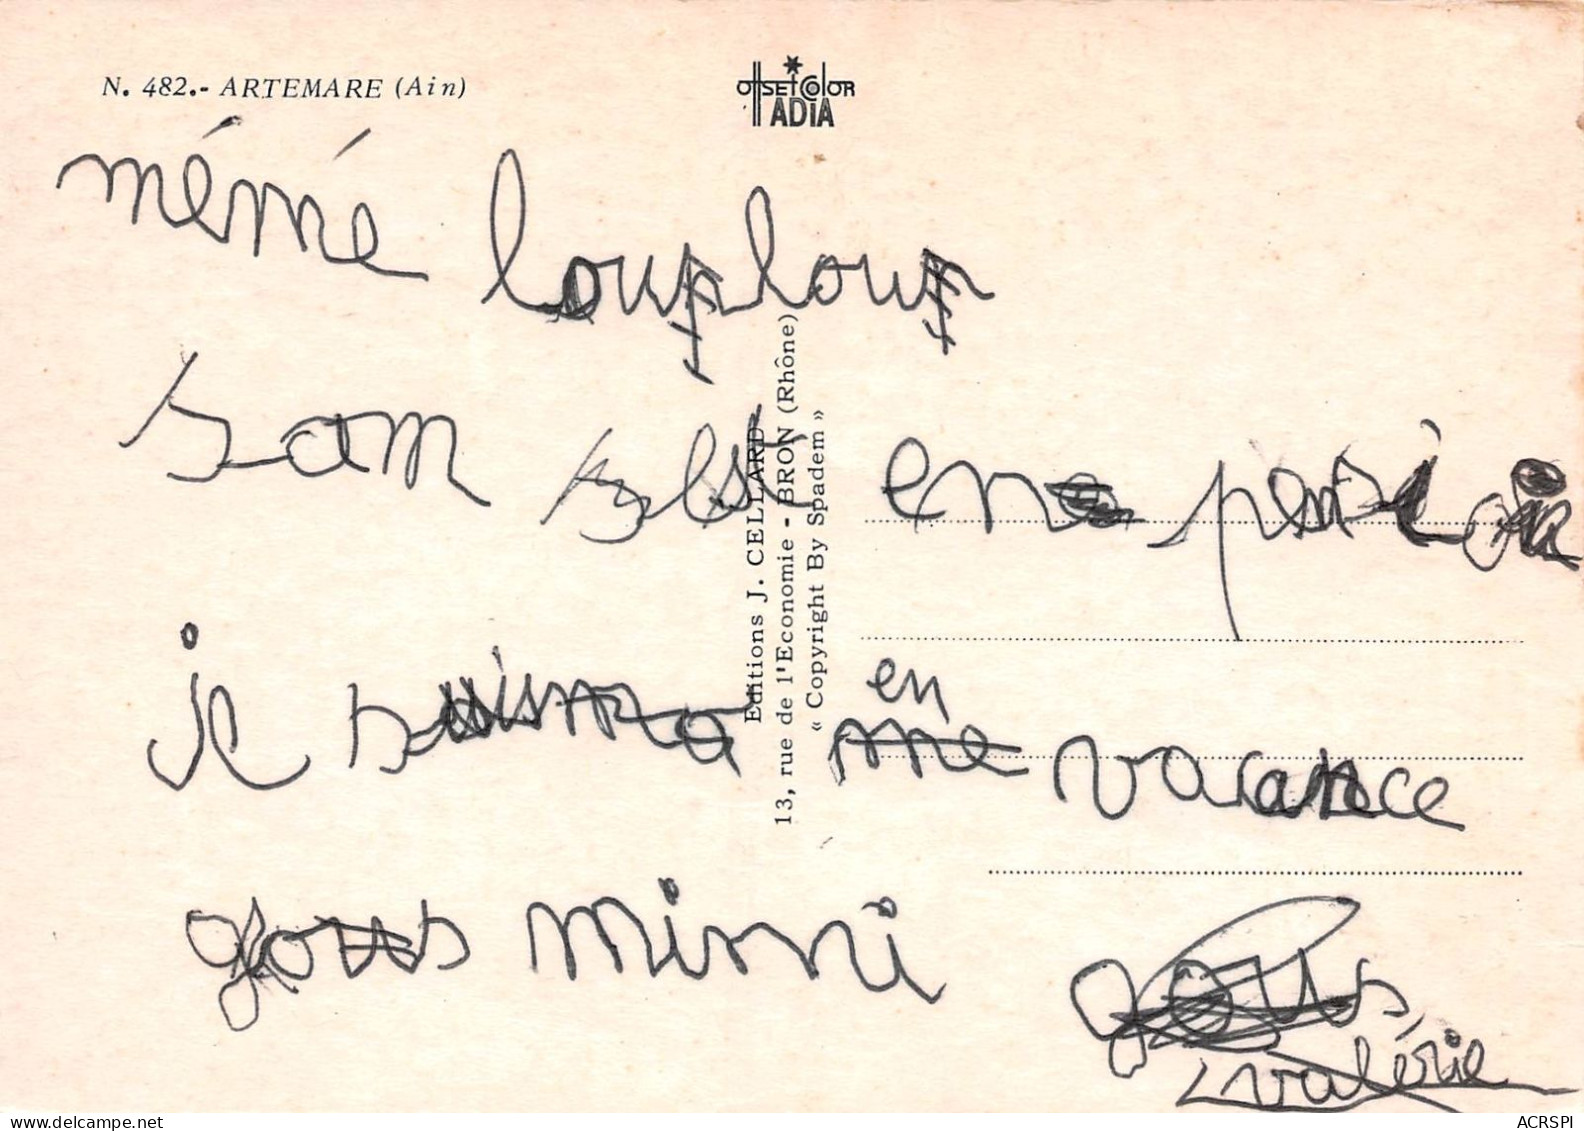 N. 482.- ARTEMARE (Ain)
OffsetColor
ADIA
mémé louploup
sam est en
je en vacance
gous mimi
valérie
Editions J. CELLARD
13, rue de l'Economie - BRON (Rhône)
« Copyright By Spadem »
ACRSPI